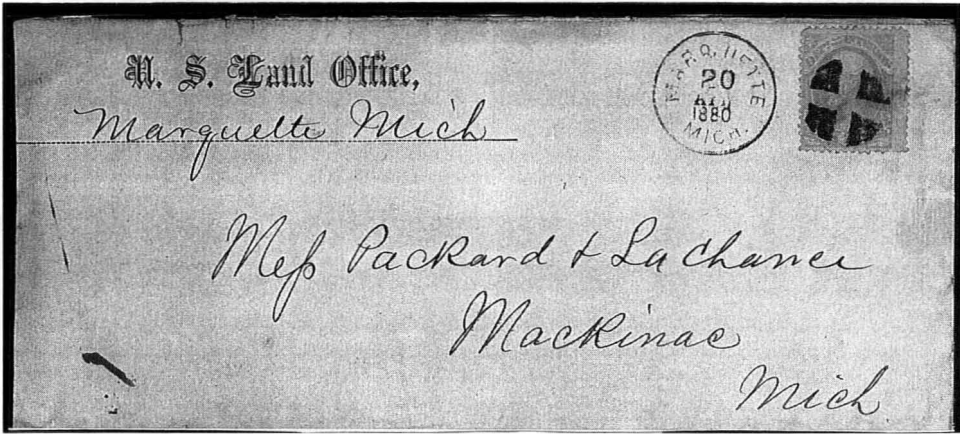 U. S. Land Office,
Marquette Mich
MARQUETTE
20
APR
1880
MICH.
Mess Packard & LaChance
Mackinac
Mich